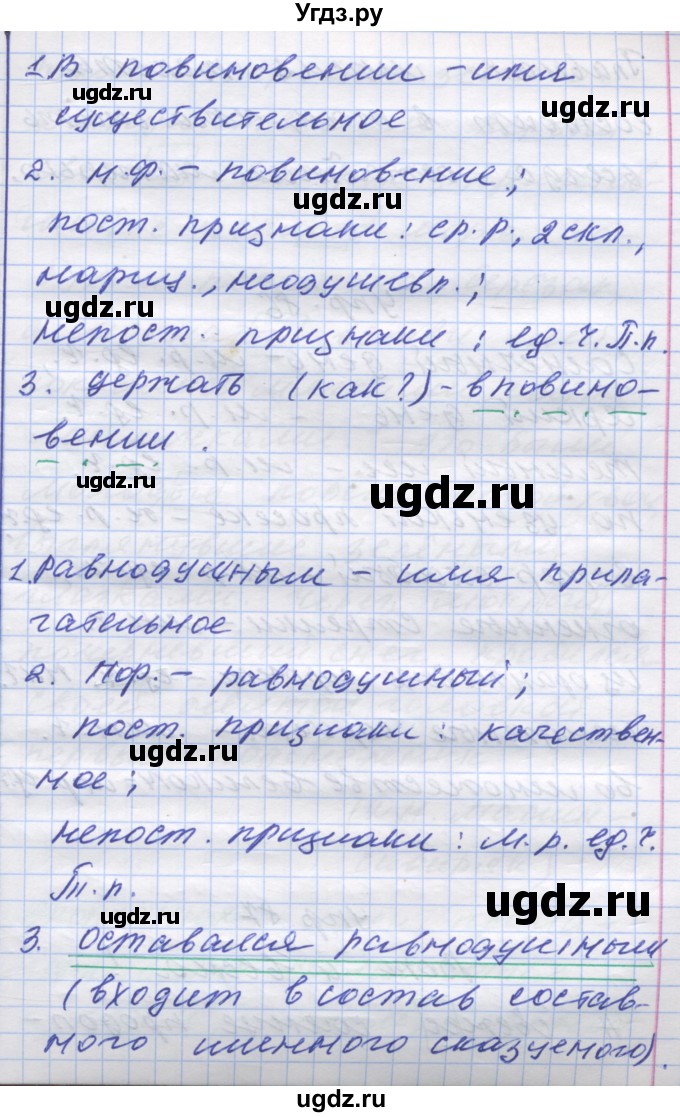 Угдз.ру
1. В повиновении - имя
ugdz.ru ugdz.ru
существительное
2. н.ф. - повиновение;
ugdz.ru
пост. признаки: ср.р., 2 скл.,
нариц., неодушевл.;
ugdz.ru
непост. признаки: ед.ч. П.п.
3. держать (как?) - в повино-
вении.
ugdz.ru
ugdz.ru
1. Равнодушным - имя прила-
ugdz.ru
гательное
2. Нф. - равнодушный;
пост. признаки: качествен-
ugdz.ru
ное;
непост. признаки: м.р. ед.ч.
Т.п.
ugdz.ru
ugdz.ru
3. оставался равнодушным
(входит в состав состав-
ного именного сказуемого).
ugdz.ru ugdz.ru